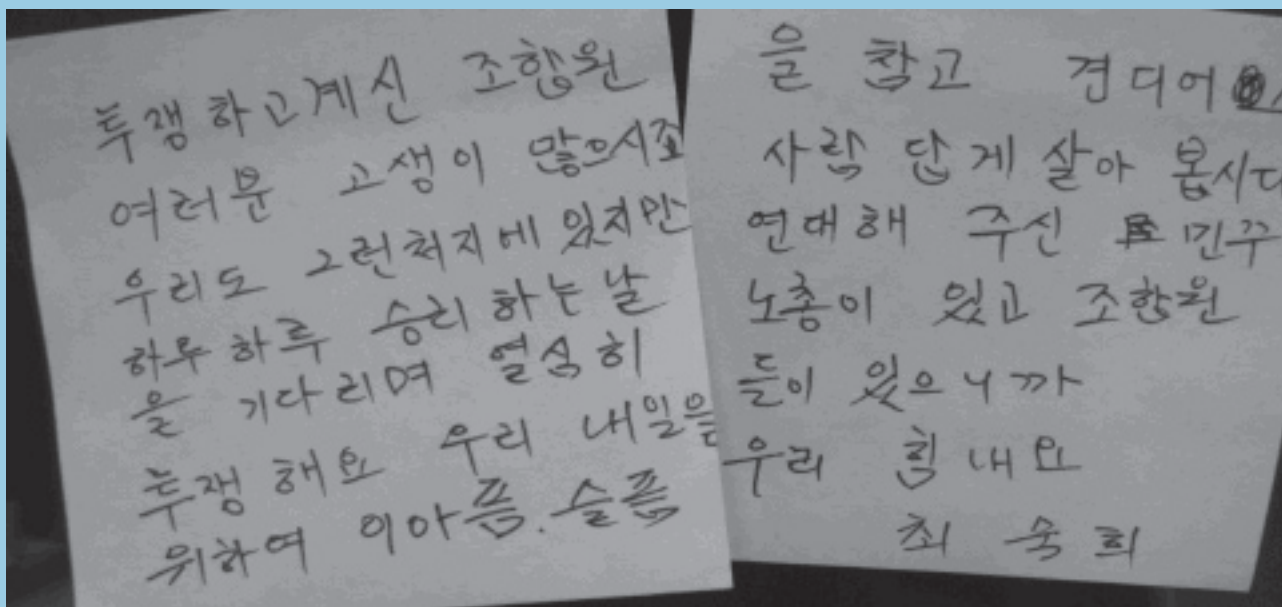 투쟁하고계신 조합원
여러분 고생이 많으시죠
우리도 그런처지에 있지만
하루하루 승리하는날
을 기다리며 열심히
투쟁해요 우리 내일을
위하여 이아픔.슬픔
을 참고 견디어
사람 답게 살아 봅시다
연대해 주신 민주
노총이 있고 조합원
들이 있으니까
우리 힘내요
최숙희